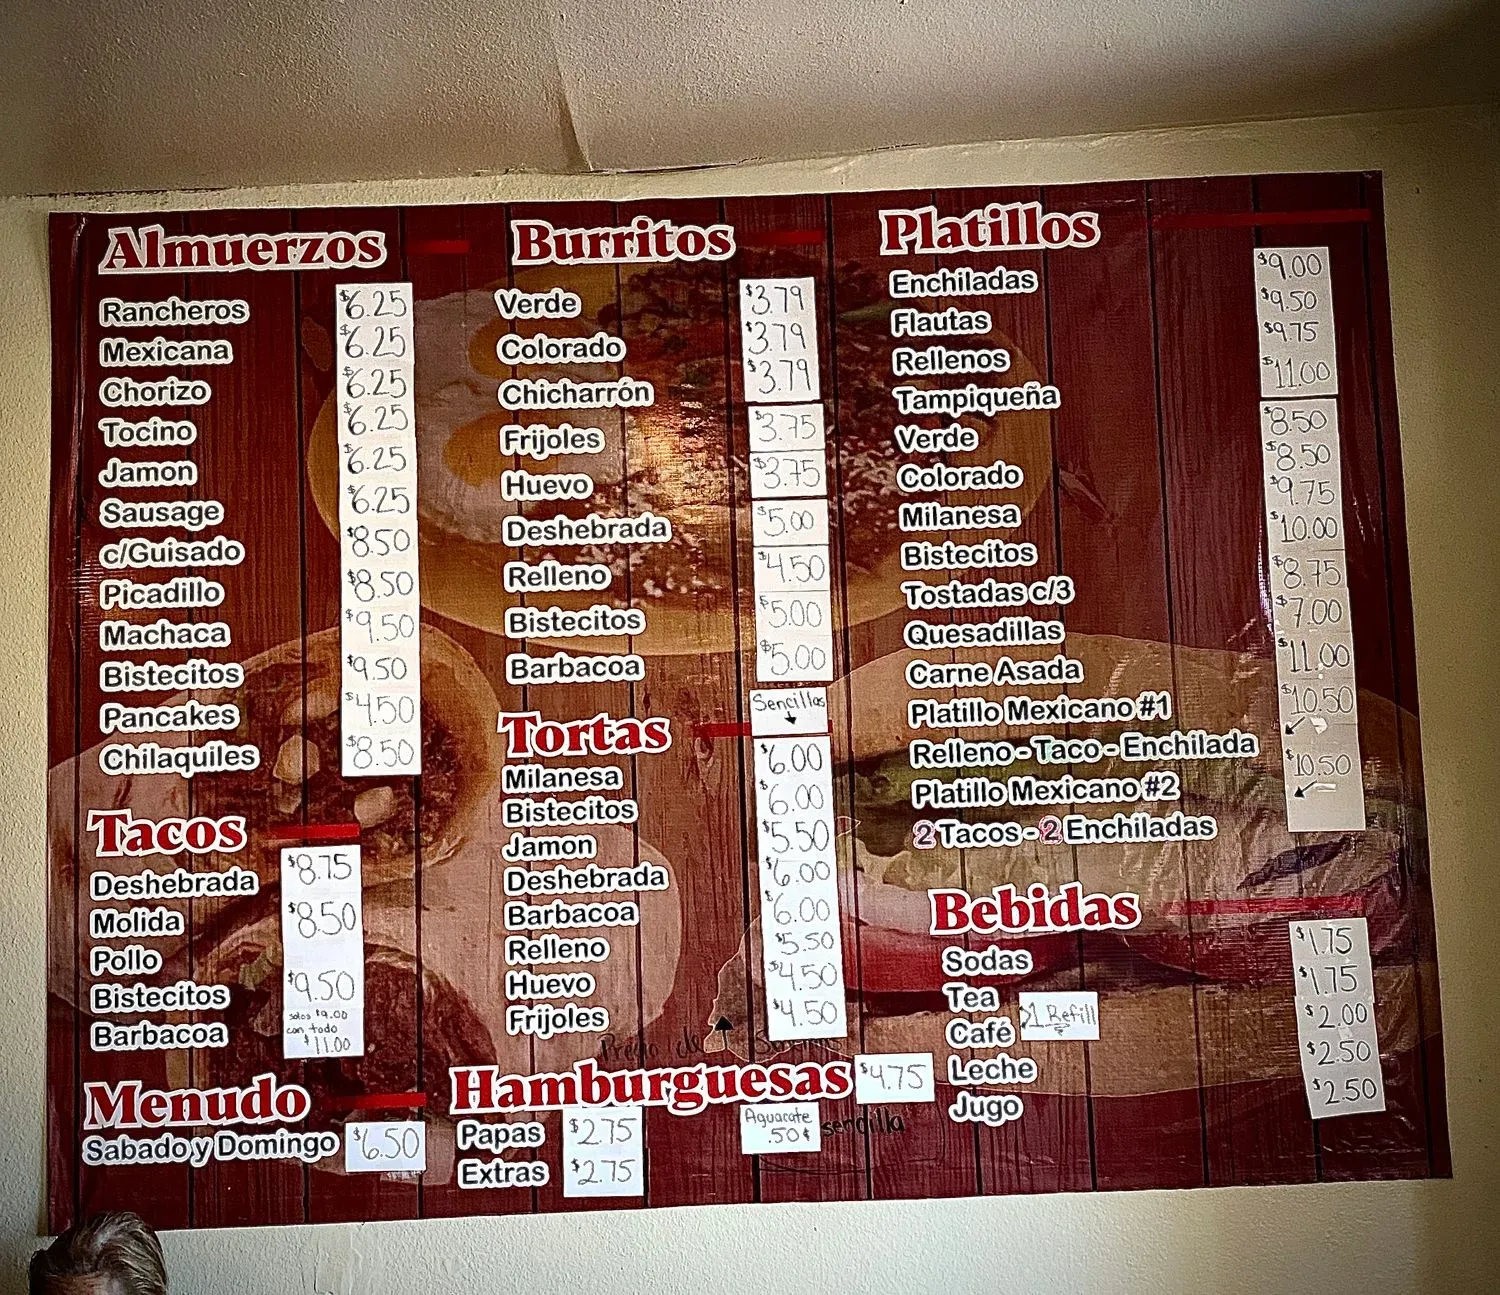 Almuerzos
Rancheros $6.25
Mexicana $6.25
Chorizo $6.25
Tocino $6.25
Jamon $6.25
Sausage $6.25
c/Guisado $8.50
Picadillo $8.50
Machaca $9.50
Bistecitos $9.50
Pancakes $4.50
Chilaquiles $8.50
Tacos
Deshebrada $8.75
Molida $8.50
Pollo
Bistecitos $9.50
Barbacoa solos $9.00
con todo
$11.00
Menudo
Sabado y Domingo $6.50
Burritos
Verde $3.79
Colorado $3.79
Chicharrón $3.79
Frijoles $3.75
Huevo $3.75
Deshebrada $5.00
Relleno $4.50
Bistecitos $5.00
Barbacoa $5.00
Sencillas
Tortas
Milanesa $6.00
Bistecitos $6.00
Jamon $5.50
Deshebrada $6.00
Barbacoa $6.00
Relleno $5.50
Huevo $4.50
Frijoles $4.50
Precio de
Hamburguesas $4.75
Papas $2.75
Extras $2.75
Aguacate
.50¢
sencilla
Platillos
Enchiladas $9.00
Flautas $9.50
Rellenos $9.75
Tampiqueña $11.00
Verde $8.50
Colorado $8.50
Milanesa $9.75
Bistecitos $10.00
Tostadas c/3 $8.75
Quesadillas $7.00
Carne Asada $11.00
Platillo Mexicano #1 $10.50
Relleno - Taco - Enchilada
Platillo Mexicano #2 $10.50
2 Tacos - 2 Enchiladas
Bebidas
Sodas $1.75
Tea $1.75
Café 1 Refill $2.00
Leche $2.50
Jugo $2.50